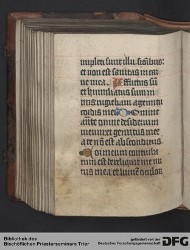 impleti sunt illusionibus:
et non est sanitas in car
ne mea. Afflictus sum
et humiliatus sum ni
mis rugiebam a gemitu
cordis mei. Domine
ante te omne desiderium
meum et gemitus meus
a te non est absconditus.
Cor meum conturba
tum est dereliquit me vir
tus mea et lumen oculorum
Bibliothek des
Bischöflichen Priesterseminars Trier
gefördert von der
Deutschen Forschungsgemeinschaft
DFG